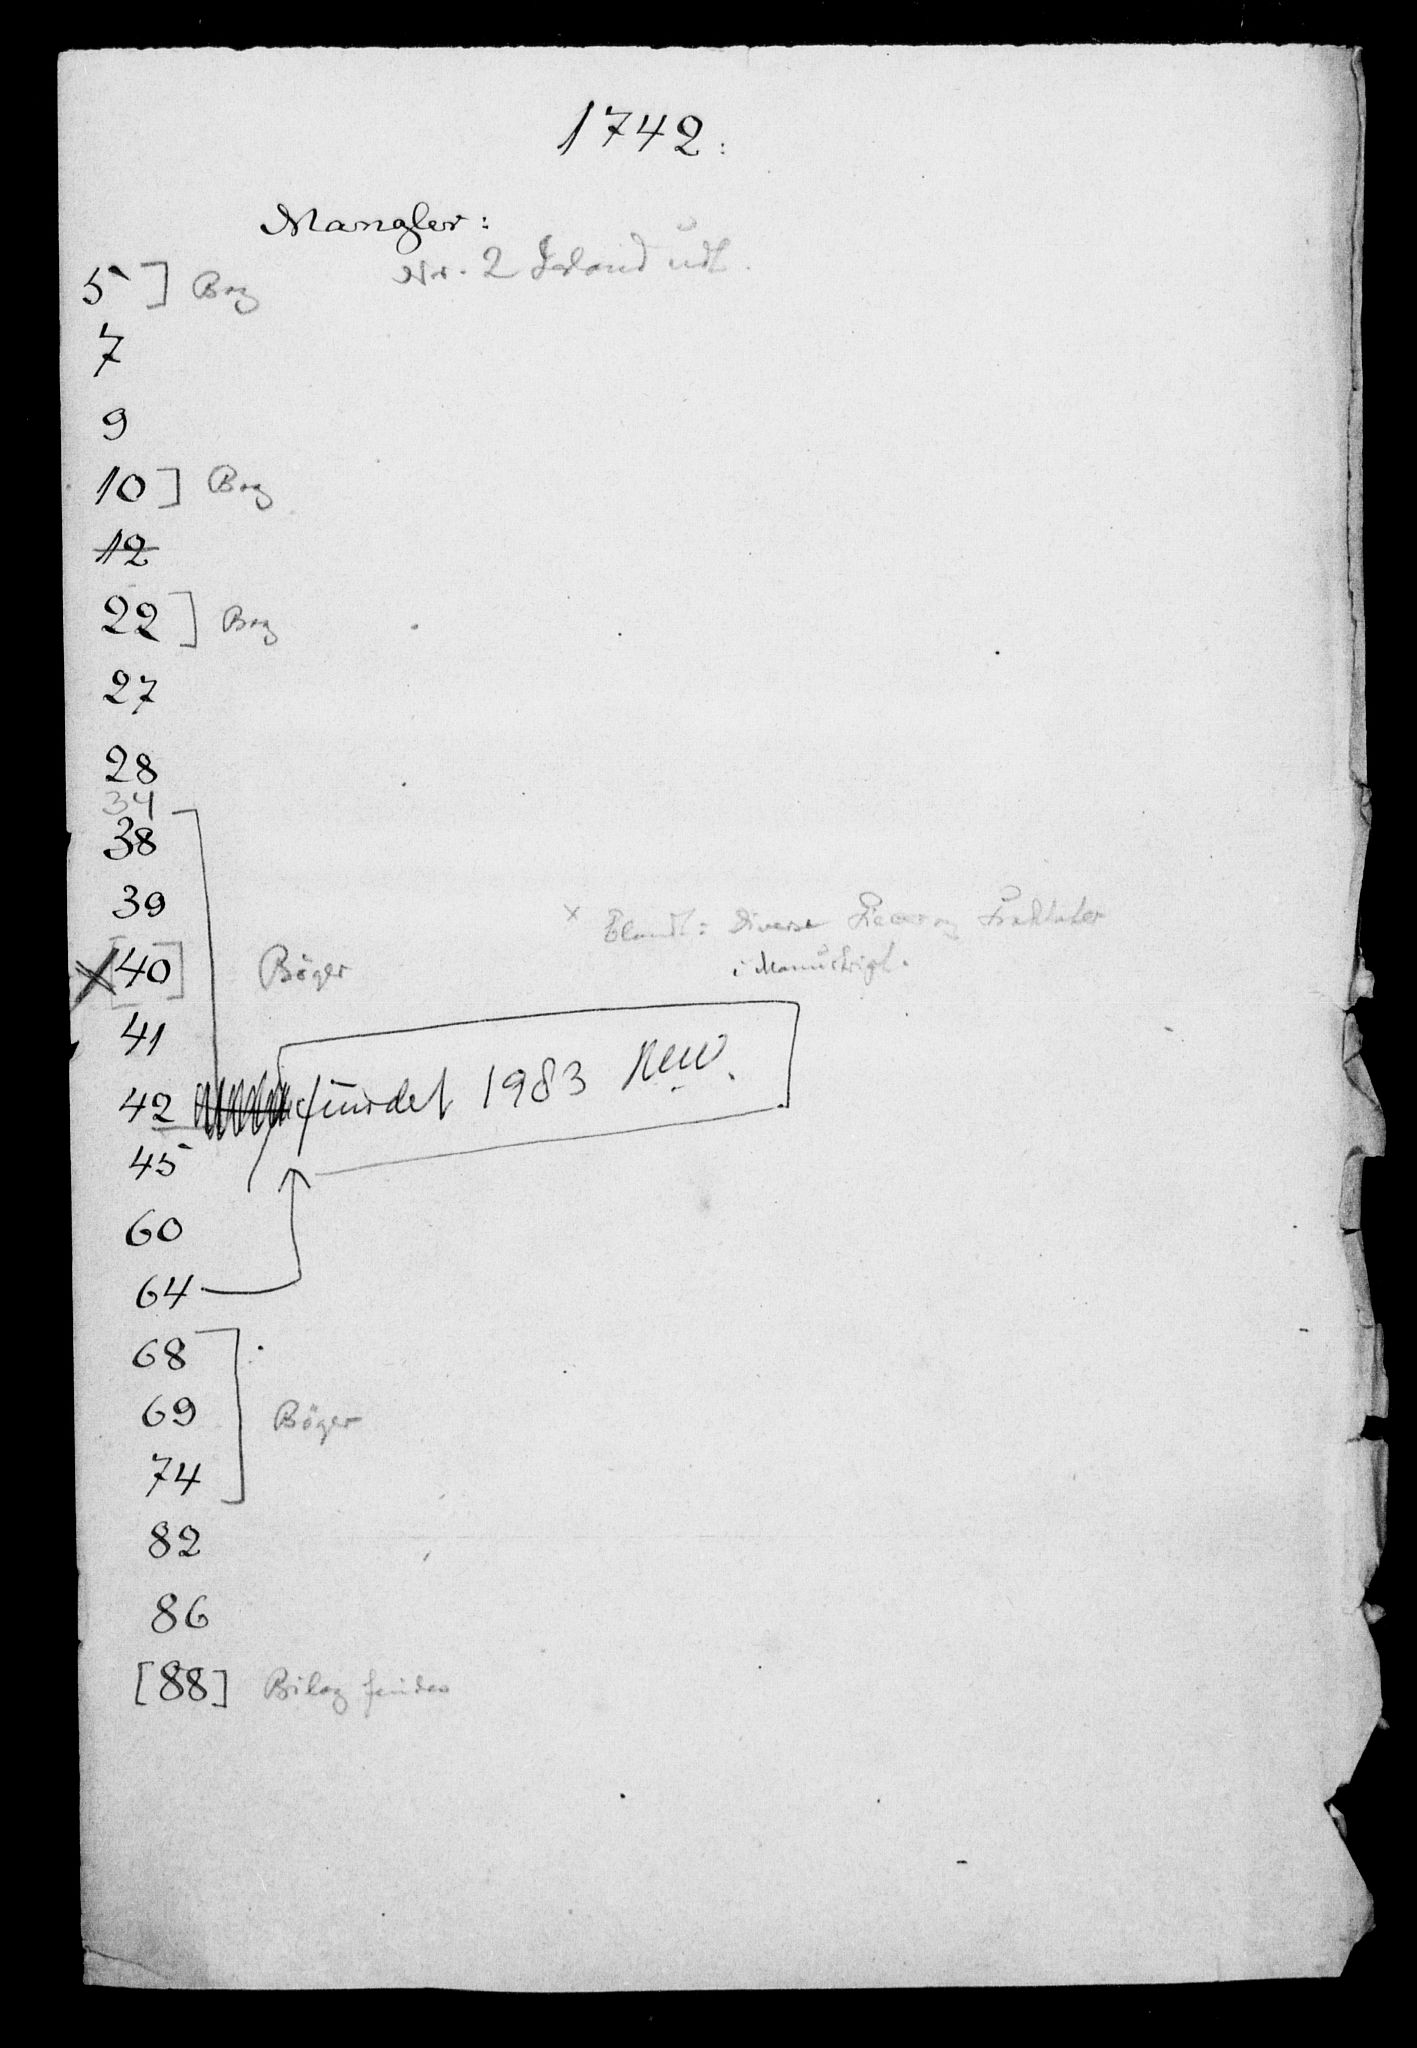 1742:
Mangler:
Nr. 2 Island udt.
5] Bog
7
9
10] Bog
12
22] Bog
27
28
34
38
39
x Blandt: Diverse Piecer og Traktater
[40] Bøger
i Manuskript.
41
42 fundet 1983
45
60
64
68
69 Bøger
74
82
86
[88] Bilag findes